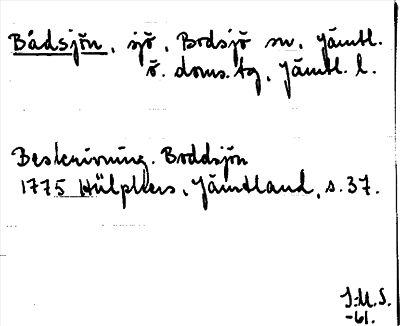 Bådsjön, sjö, Bodsjö sn, Jämtl.
ö. doms.tg, Jämtl. l.
Beskrivning. Boddsjön
1775 Hülphers, Jämtland, s. 37.
I.M.S.
-61.